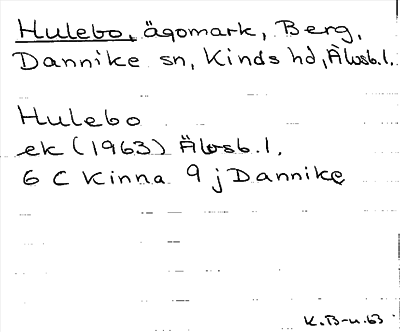 Hulebo, ägomark, Berg,
Dannike sn, Kinds hd, Älvsb.l.
Hulebo
ek (1963) Älvsb.l.
6 C Kinna 9 j Dannike
K.B-n.63